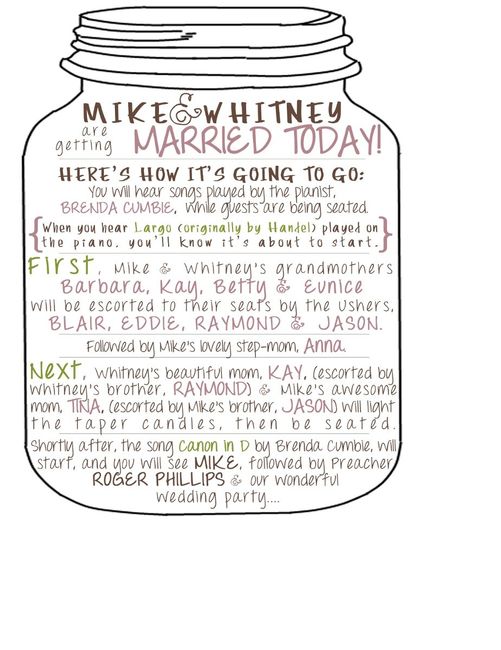 MIKE & WHITNEY
are getting MARRIED TODAY!
HERE'S HOW IT'S GOING TO GO:
You will hear songs played by the pianist,
BRENDA CUMBIE, while guests are being seated.
{When you hear Largo (originally by Handel) played on
the piano, you'll know it's about to start.}
First, Mike & Whitney's grandmothers
Barbara, Kay, Betty & Eunice
will be escorted to their seats by the ushers,
BLAIR, EDDIE, RAYMOND & JASON.
Followed by Mike's lovely step-mom, Anna.
Next, Whitney's beautiful mom, KAY, (escorted by
Whitney's brother, RAYMOND) & Mike's awesome
mom, TINA, (escorted by Mike's brother, JASON) will light
the taper candles, then be seated.
Shortly after, the song Canon in D by Brenda Cumbie, will
start, and you will see MIKE, followed by Preacher
ROGER PHILLIPS & our wonderful
wedding party....